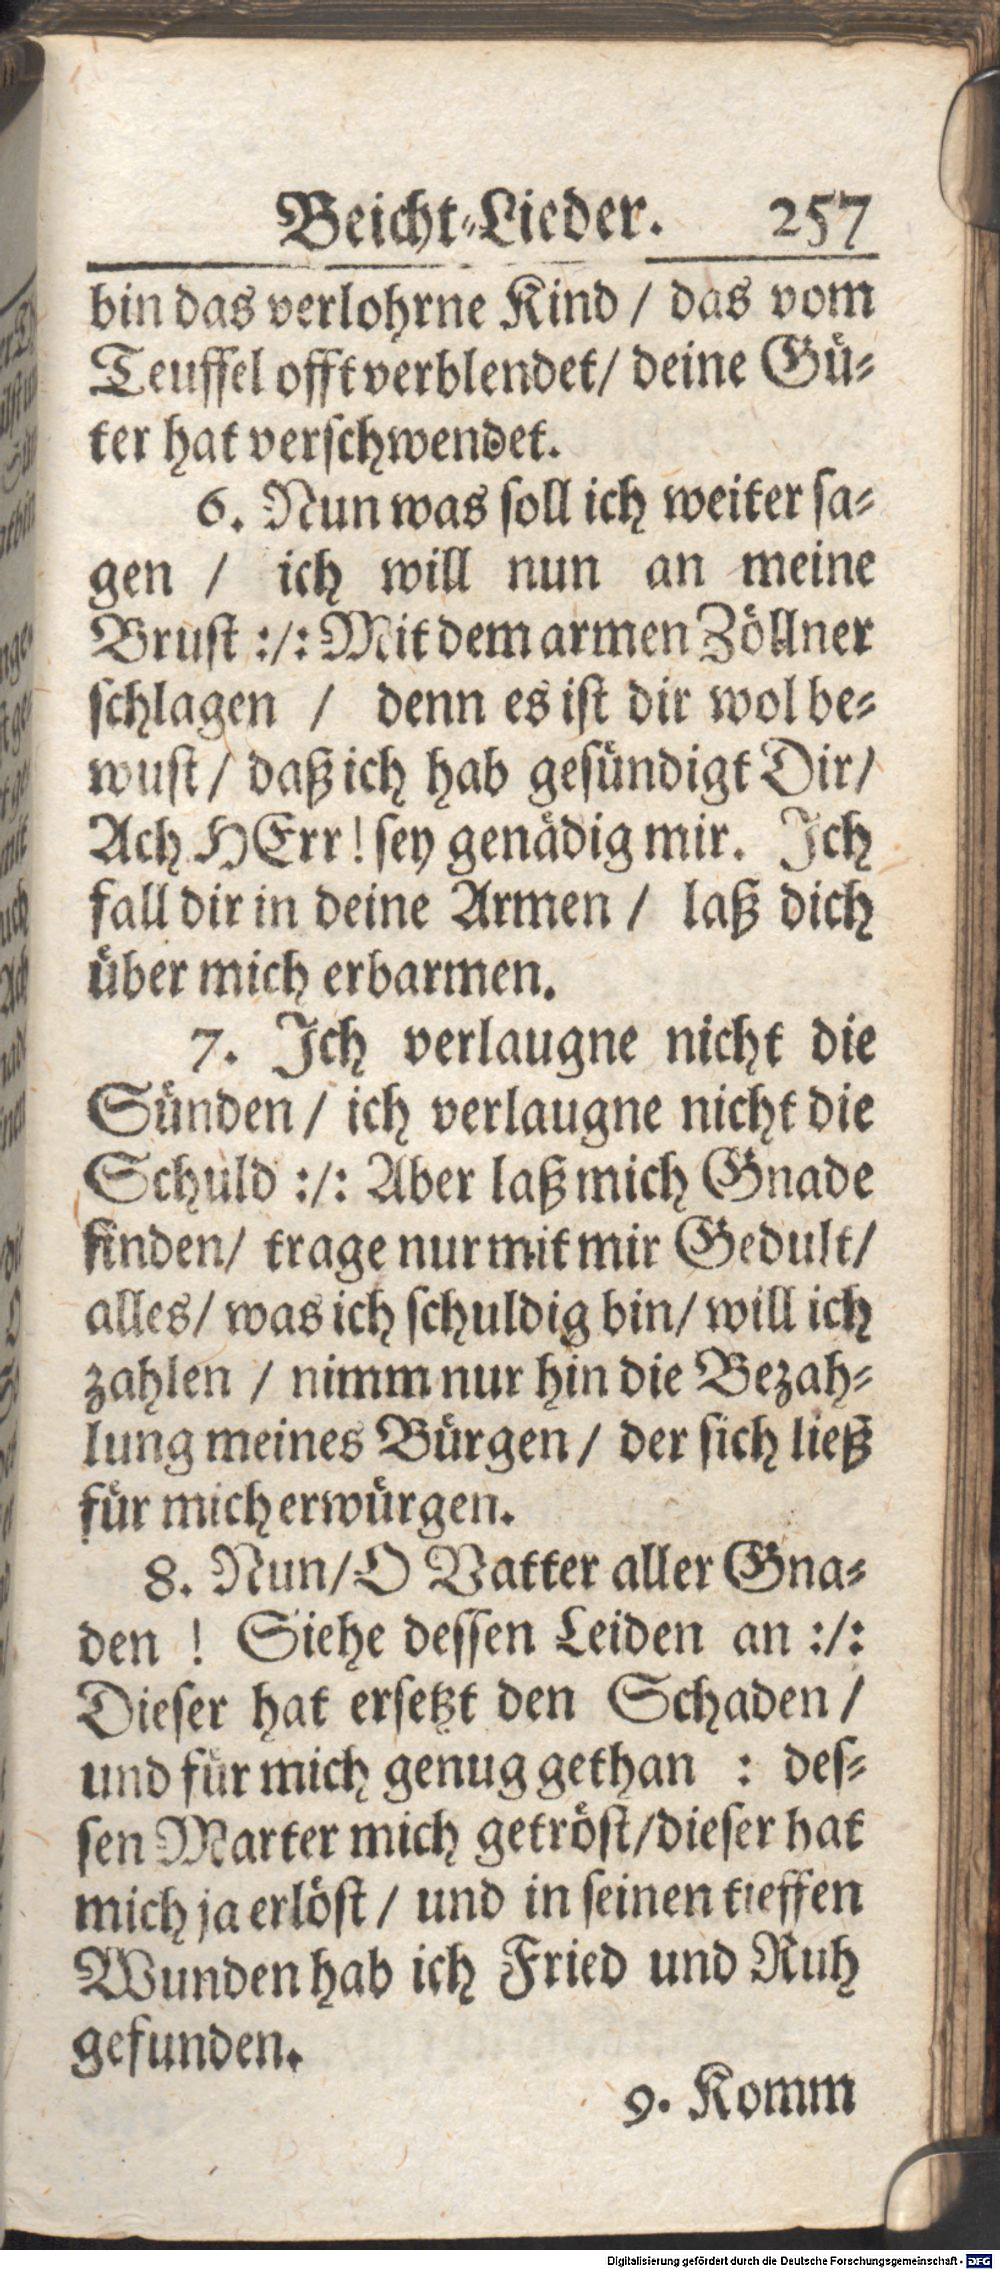 Beicht-Lieder. 257
bin das verlohrne Kind / das vom
Teuffel offt verblendet/ deine Gü-
ter hat verschwendet.
6. Nun was soll ich weiter sa-
gen / ich will nun an meine
Brust :/: Mit dem armen Zöllner
schlagen / denn es ist dir wol be-
wust/ daß ich hab gesündigt Dir/
Ach HErr! sey genädig mir. Ich
fall dir in deine Armen / laß dich
über mich erbarmen.
7. Ich verlaugne nicht die
Sünden/ ich verlaugne nicht die
Schuld :/: Aber laß mich Gnade
finden/ trage nur mit mir Gedult/
alles/ was ich schuldig bin/ will ich
zahlen / nimm nur hin die Bezah-
lung meines Bürgen/ der sich ließ
für mich erwürgen.
8. Nun/O Vatter aller Gna-
den ! Siehe dessen Leiden an :/:
Dieser hat ersetzt den Schaden /
und für mich genug gethan : des-
sen Marter mich getröst/dieser hat
mich ja erlöst / und in seinen tieffen
Wunden hab ich Fried und Ruh
gefunden.
9. Komm
Digitalisierung gefördert durch die Deutsche Forschungsgemeinschaft - DFG